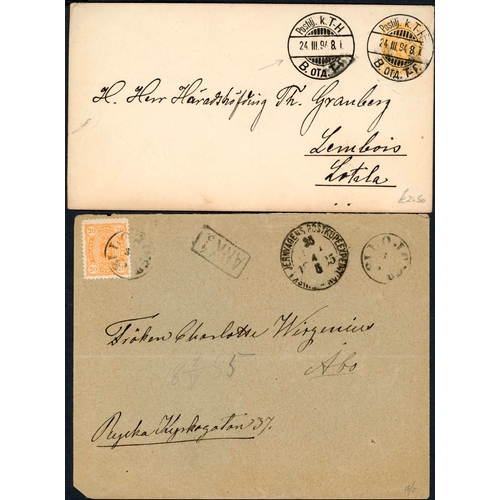 Postilj. K.T.H.
24. III. 94. 8. I
B. OTA. T-F.
Postilj. K.T.H.
24. III. 94. 8. I
B. OTA. T-F.
H. Herr Häradshöfding Th. Granberg
Lembois
Lotila
£2.50
20 20
POSTKUPEEXPEDITION
Fröken Charlotte Wirzenius
Åbo
Ryska Kyrkogatan 37.